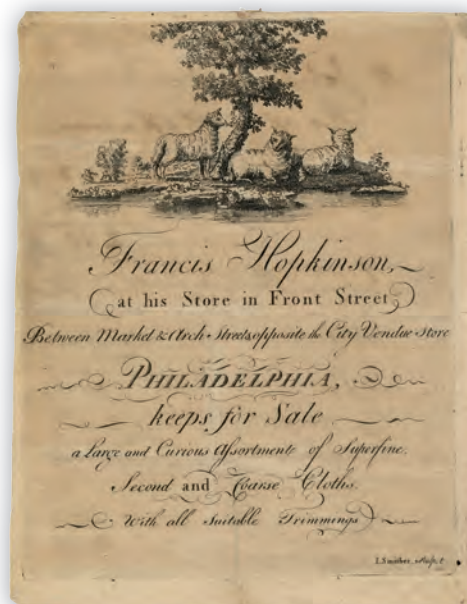 Francis Hopkinson,
at his Store in Front Street,
Between Market & Arch Streets opposite the City Vendue Store
PHILADELPHIA,
keeps for Sale
a Large and Curious Assortment of Superfine,
Second and Coarse Cloths.
With all Suitable Trimmings